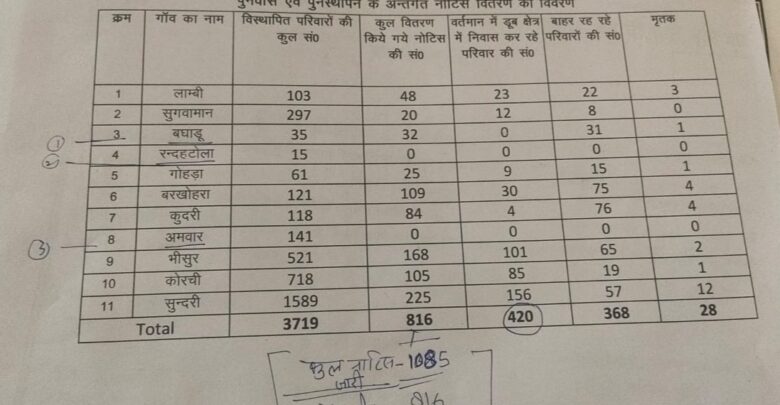 पुनर्वास एवं पुनर्स्थापन के अन्तर्गत नोटिस वितरण का विवरण
क्रम गॉव का नाम विस्थापित परिवारों की कुल सं0 कुल वितरण किये गये नोटिस की सं0 वर्तमान में डूब क्षेत्र में निवास कर रहे परिवार की सं0 बाहर रह रहे परिवारों की सं0 मृतक
1 लाम्बी 103 48 23 22 3
2 सुगवामान 297 20 12 8 0
① 3 बघाडू 35 32 0 31 1
② 4 रन्दहटोला 15 0 0 0 0
5 गोहड़ा 61 25 9 15 1
6 बरखोहरा 121 109 30 75 4
7 कुदरी 118 84 4 76 4
③ 8 अमवार 141 0 0 0 0
9 भीसुर 521 168 101 65 2
10 कोरची 718 105 85 19 1
11 सुन्दरी 1589 225 156 57 12
Total 3719 816 420 368 28
कुल नोटिस - 1085
जारी
816